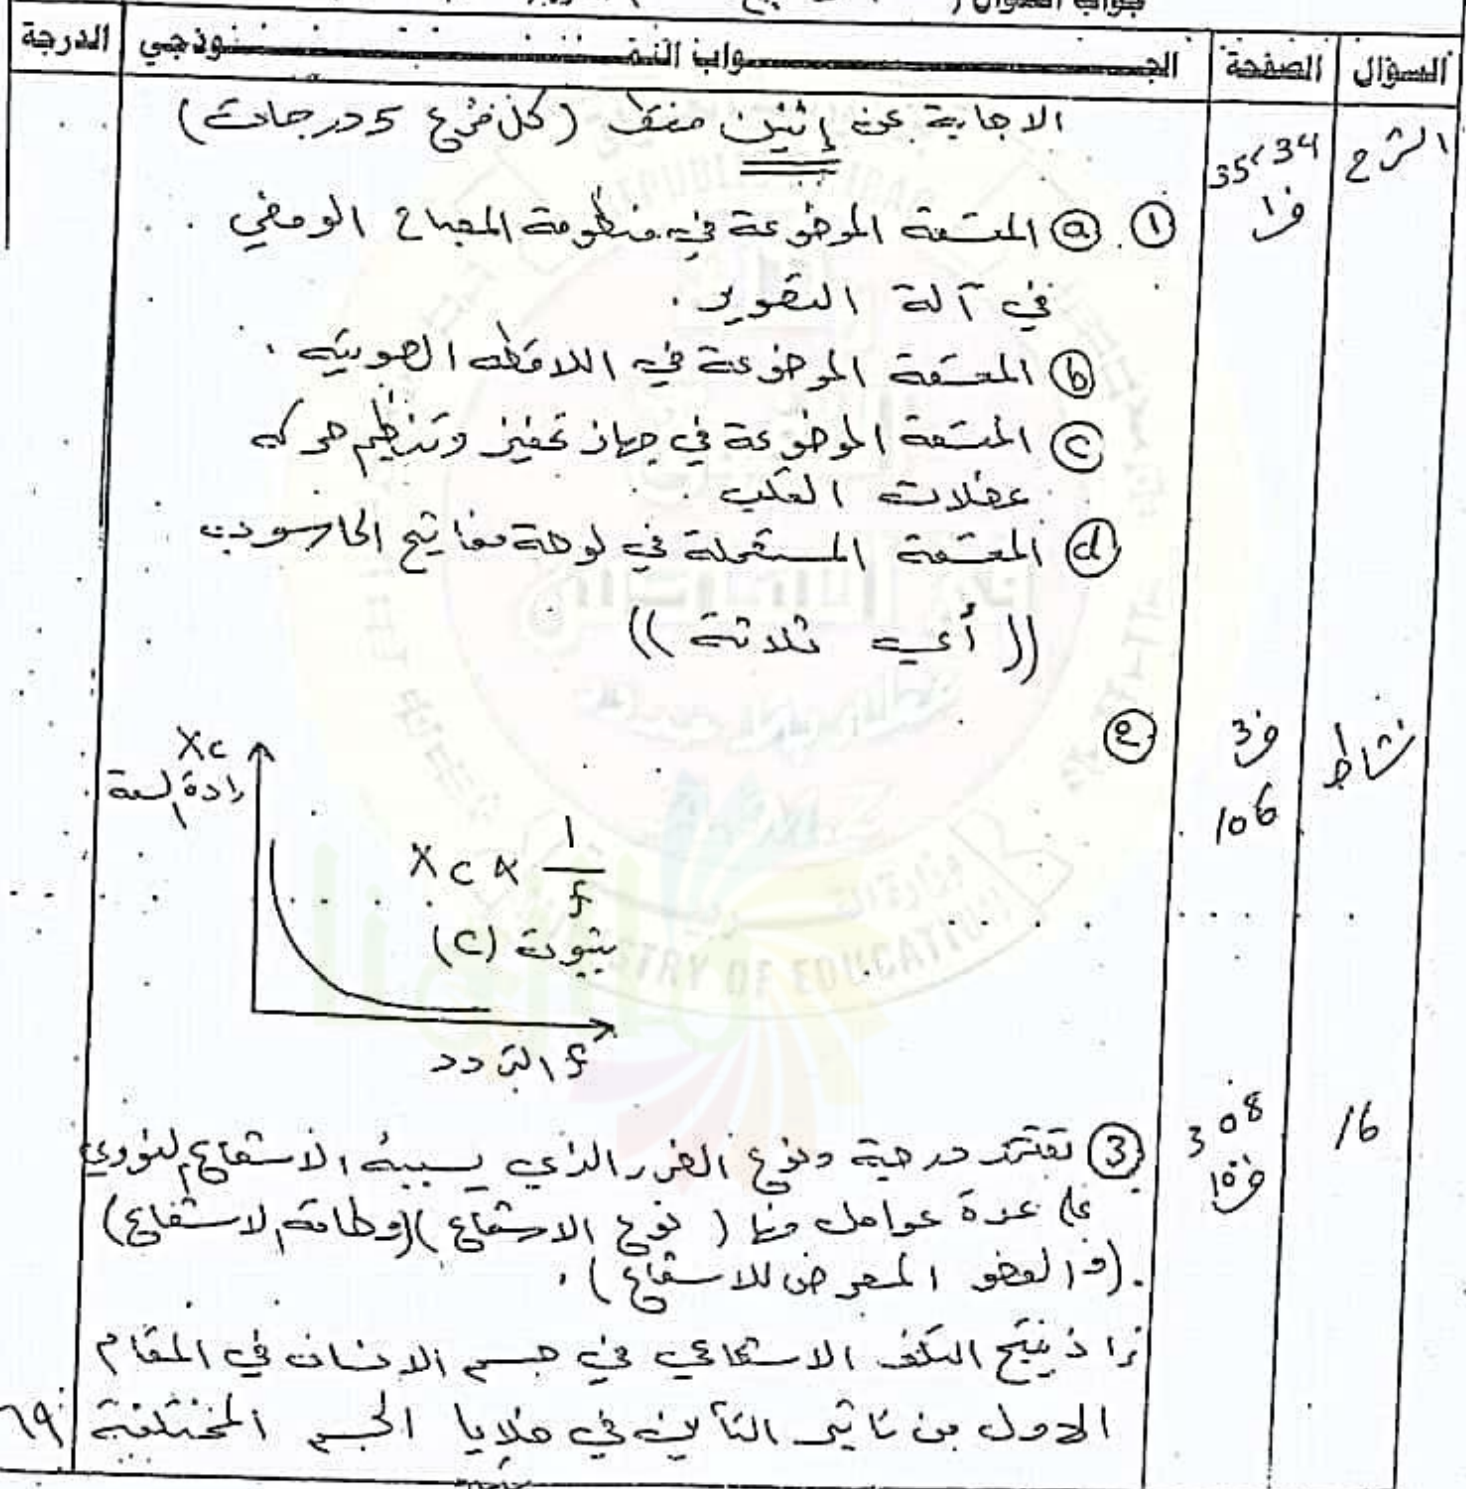 جواب السؤال (
السؤال الصفحة الجـــواب النمـــوذجي الدرجة
الاجابة عن إثنين فقط (كل فرع 5 درجات)
الشرح
34، 35
ف1
① ⓐ المتسعة الموضوعة في منظومة المصباح الومضي
في آلة التصوير.
ⓑ المتسعة الموضوعة في اللاقطه الصوتيه.
ⓒ المتسعة الموضوعة في جهاز تحفيز وتنظيم حركه
عضلات القلب
ⓓ المتسعة المستعملة في لوحة مفاتيح الحاسوب
(( أي ثلاثة ))
نشاط
ف3
106
②
Xc
رادة السعة
Xc ∝ 1/f
بثبوت (C)
f التردد
16
308
ف10
③ تعتمد درجة ونوع الضرر الذي يسببه الاشعاع النووي
على عدة عوامل منها ( نوع الاشعاع )(وطاقة الاشعاع)
(والعضو المعرض للاشعاع).
إذ ينتج التلف الاشعاعي في جسم الانسان في المقام
الاول من تاثير التأين في خلايا الجسم المختلفة
MINISTRY OF EDUCATION